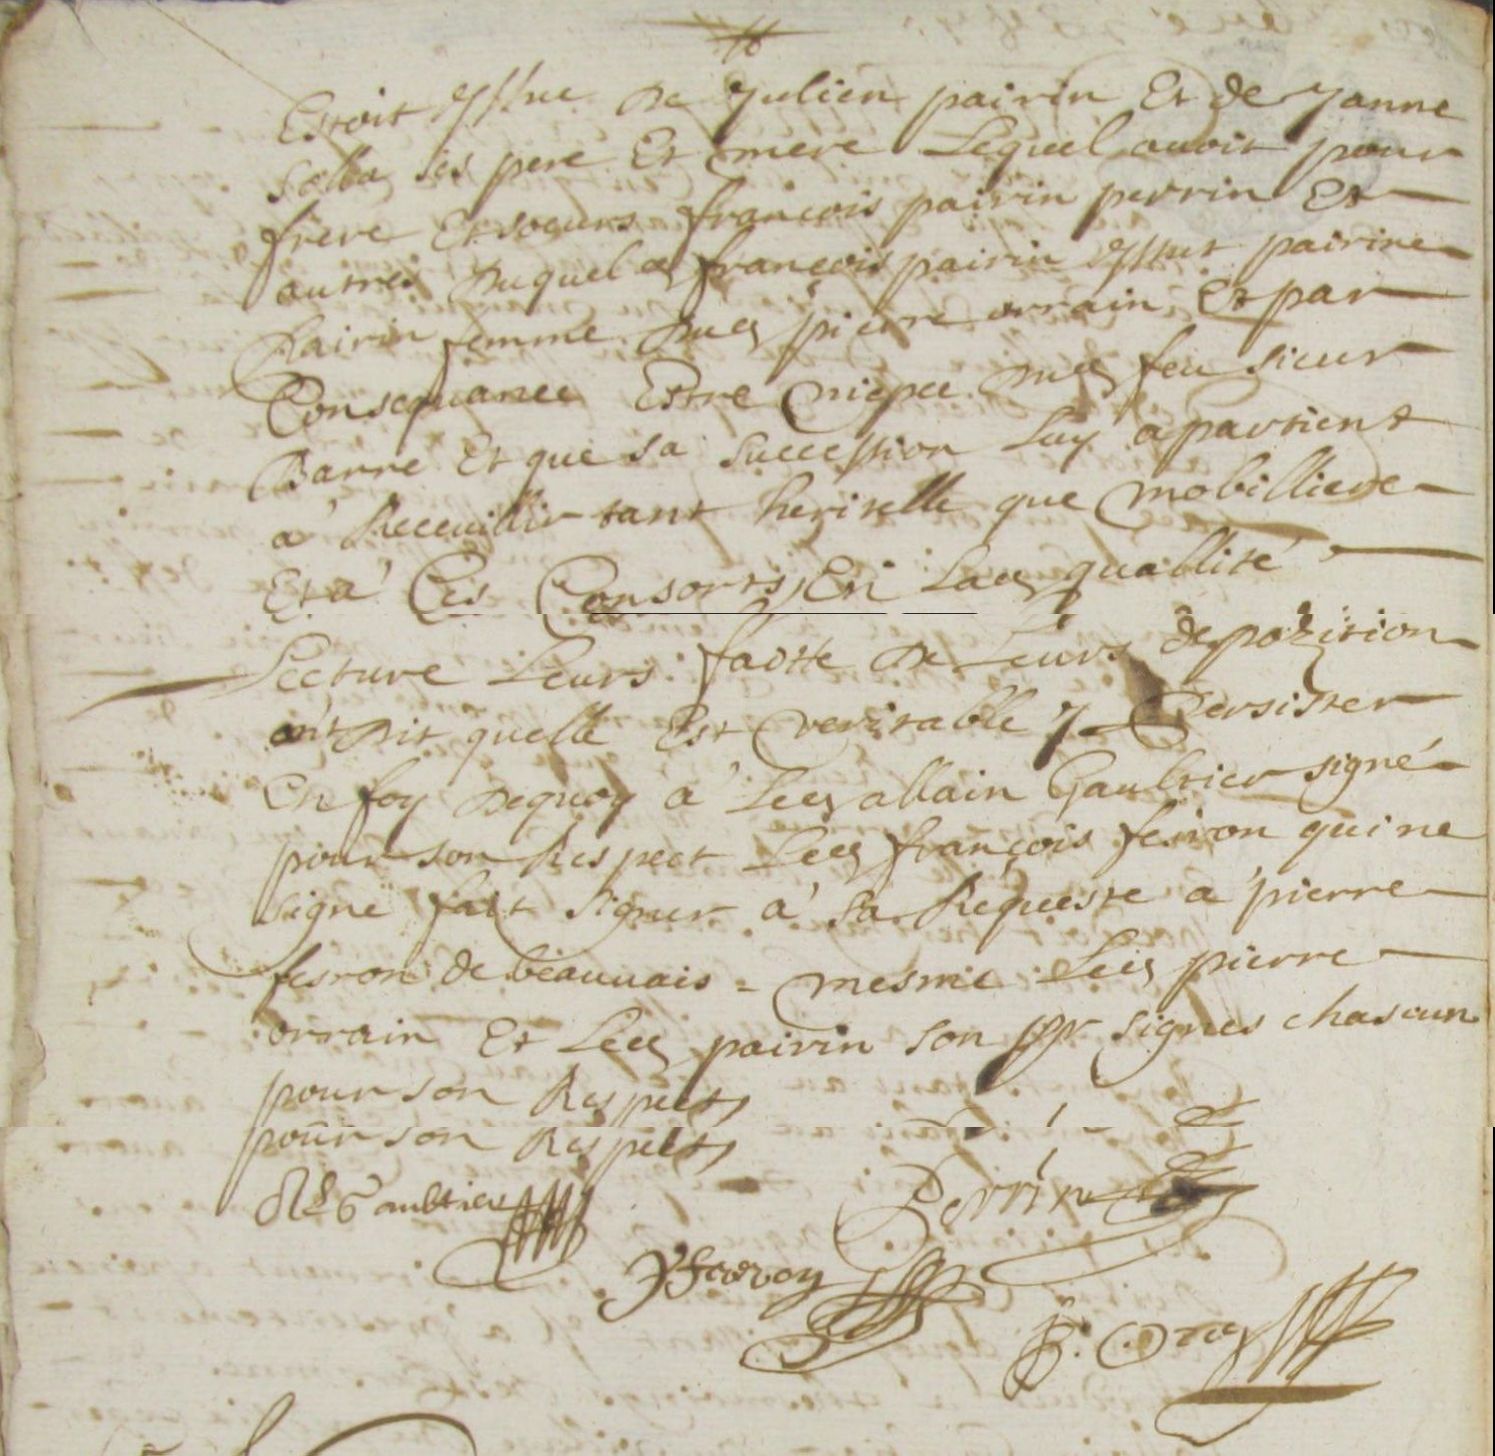 Estoit yssue de Julien pairin Et de Janne
salba ses pere Et mere Lequel auoit pour
frere Et soeurs françois pairin perrin Et
autres duquel françois pairin yssut pairine
Pairin femme dud pierre orrain Et par
Consequance Estre niepce dud feu sieur
Barre Et que sa succession Luy apartient
a Receuillir tant heritelle que mobilliere
Et a Ces Consorts En Lad quallité
Lecture Leurs faitte de Leurs depozition
ont dit quelle Est veritable y Persister
En foy dequoy a Led allain Gaultier signé
pour son Respect Led françois feron qui ne
signe fait signer a sa Requeste a pierre
fesron de beauuais = mesme Led pierre
orrain Et Led pairin son signes chascun
pour son Respect,
pour son Respect,
Gaultier
Perrin